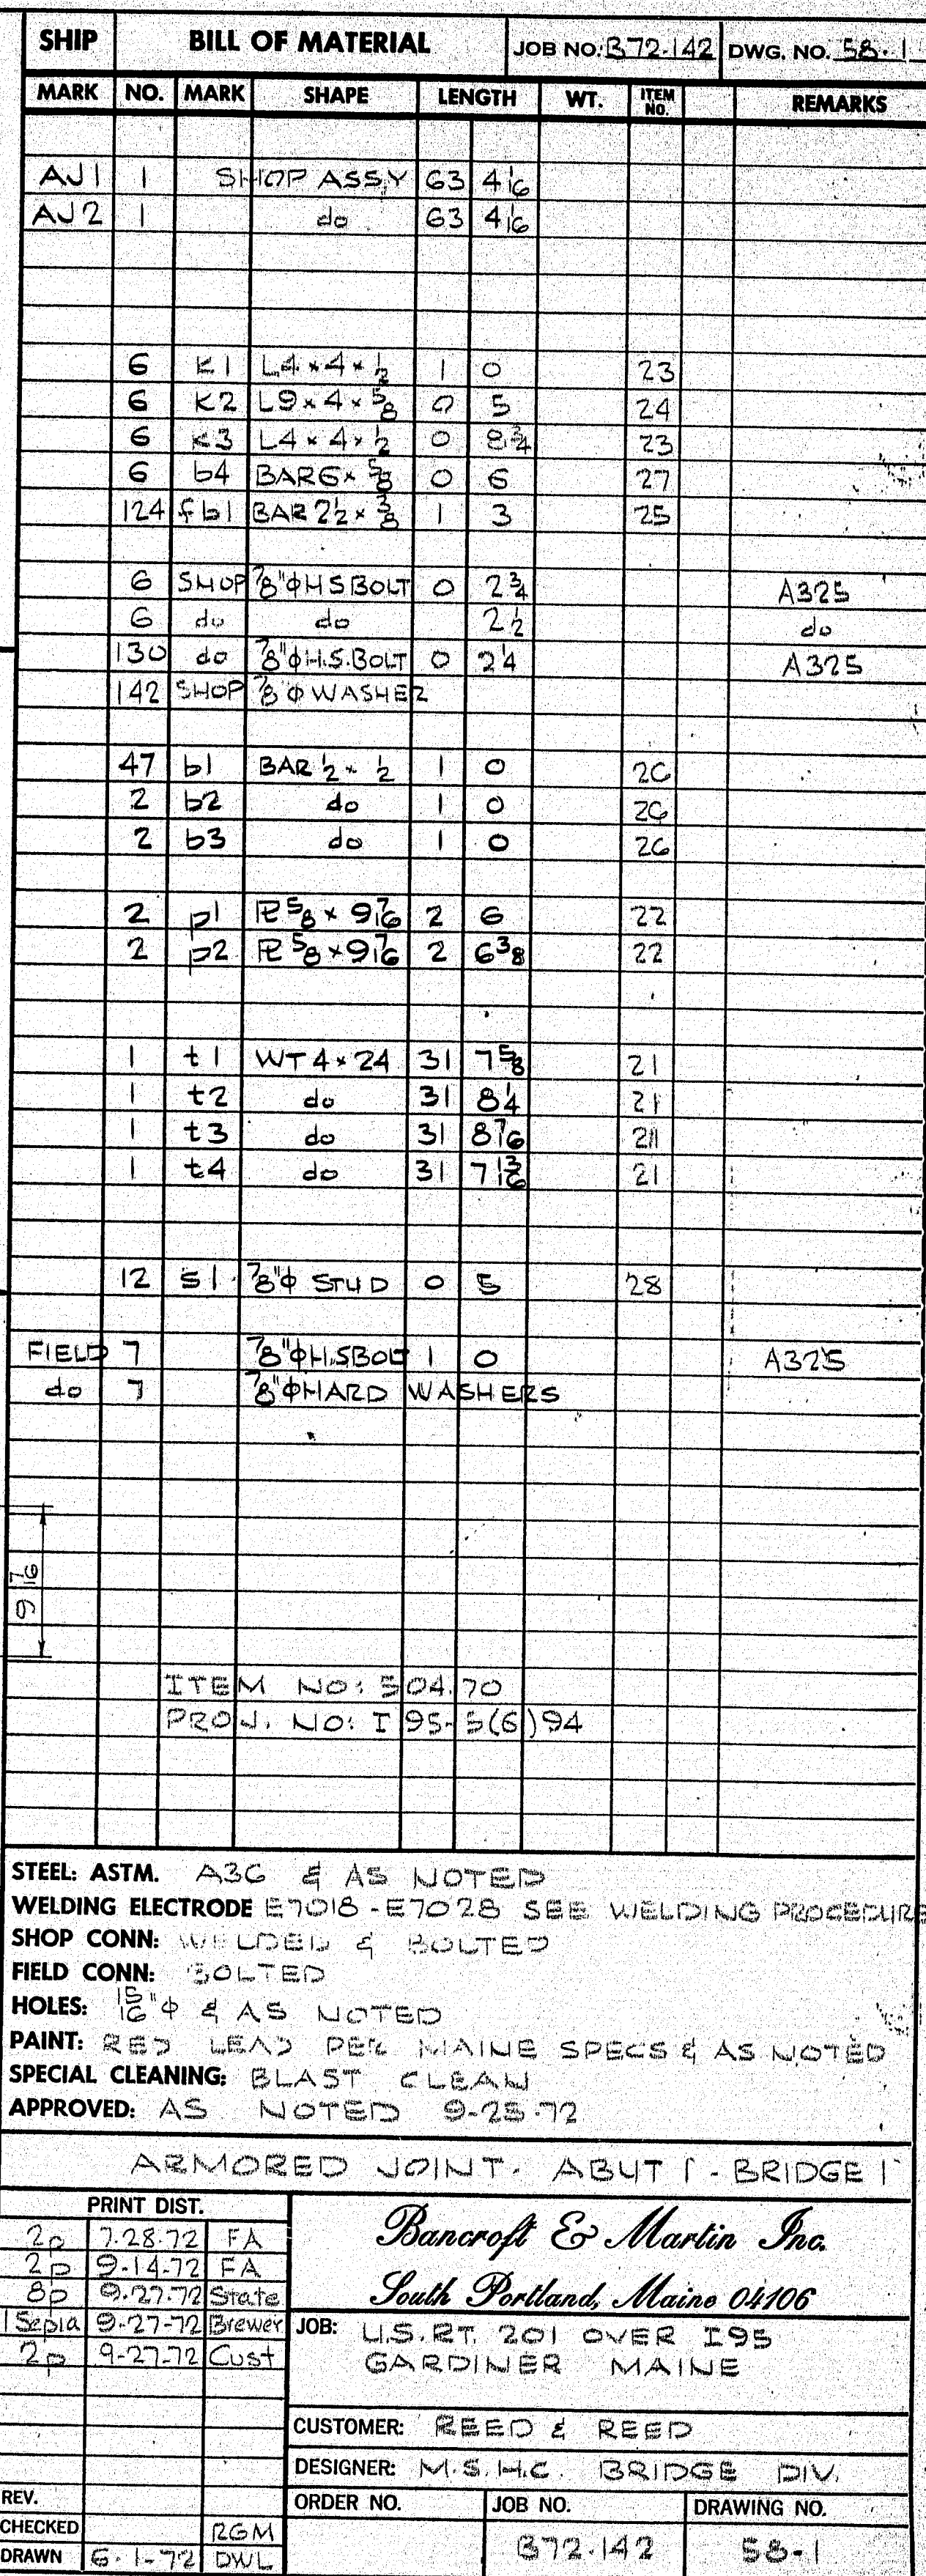 SHIP BILL OF MATERIAL JOB NO. B72-142 DWG. NO. 58-1
MARK NO. MARK SHAPE LENGTH WT. ITEM NO. REMARKS
AJ1 1 SHOP ASS,Y 63 4 1/16
AJ2 1 do 63 4 1/16
6 K1 L4 x 4 x 1/2 1 0 23
6 K2 L9 x 4 x 5/8 0 5 24
6 K3 L4 x 4 x 1/2 0 8 3/4 23
6 b4 BAR 6 x 5/8 0 6 27
124 fb1 BAR 2 1/2 x 3/8 1 3 25
6 SHOP 7/8"φ H S BOLT 0 2 3/4 A325
6 do do 2 1/2 do
130 do 7/8"φ H.S. BOLT 0 2 1/4 A325
142 SHOP 7/8"φ WASHER
47 b1 BAR 1/2 x 1/2 1 0 26
2 b2 do 1 0 26
2 b3 do 1 0 26
2 p1 PL 5/8 x 9 7/16 2 6 22
2 p2 PL 5/8 x 9 7/16 2 6 3/8 22
1 t1 WT 4 x 24 31 7 5/8 21
1 t2 do 31 8 1/4 21
1 t3 do 31 8 7/16 21
1 t4 do 31 7 13/16 21
12 s1 7/8"φ STUD 0 5 28
FIELD 7 7/8"φ H.S BOLT 1 0 A325
do 7 7/8"φ HARD WASHERS
9 7/16
ITEM NO: 504.70
PROJ. NO: I 95-5(6)94
STEEL: ASTM. A36 & AS NOTED
WELDING ELECTRODE E7018-E7028 SEE WELDING PROCEDURE
SHOP CONN: WELDED & BOLTED
FIELD CONN: BOLTED
HOLES: 15/16"φ & AS NOTED
PAINT: RED LEAD PER MAINE SPECS & AS NOTED
SPECIAL CLEANING: BLAST CLEAN
APPROVED: AS NOTED 9-25-72
ARMORED JOINT - ABUT 1 - BRIDGE 1
PRINT DIST.
2p 7-28-72 FA
2p 9-14-72 FA
8p 9-27-72 State
1 Sepia 9-27-72 Brewer
2p 9-27-72 Cust
Bancroft & Martin Inc.
South Portland, Maine 04106
JOB: U.S. RT. 201 OVER I95
GARDINER MAINE
CUSTOMER: REED & REED
DESIGNER: M.S.H.C. BRIDGE DIV.
REV.
CHECKED RGM
DRAWN 6-1-72 DWL
ORDER NO. JOB NO. DRAWING NO.
B72-142 58-1